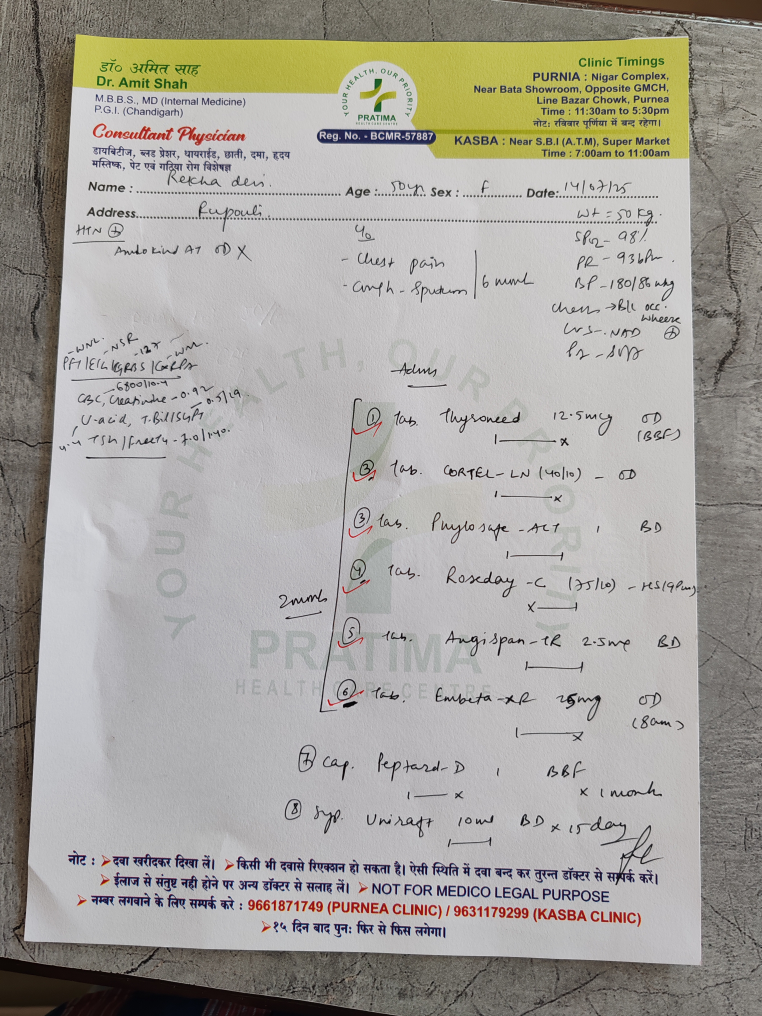 डॉ० अमित साह
Dr. Amit Shah
M.B.B.S., MD (Internal Medicine)
P.G.I. (Chandigarh)
Consultant Physician
डायबिटीज, ब्लड प्रेशर, थायराईड, छाती, दमा, हृदय
मस्तिष्क, पेट एवं गठिया रोग विशेषज्ञ
YOUR HEALTH, OUR PRIORITY
PRATIMA
HEALTH CARE CENTRE
Reg. No. - BCMR-57887
Clinic Timings
PURNIA : Nigar Complex,
Near Bata Showroom, Opposite GMCH,
Line Bazar Chowk, Purnea
Time : 11:30am to 5:30pm
नोट: रविवार पूर्णिया में बन्द रहेगा।
KASBA : Near S.B.I (A.T.M), Super Market
Time : 7:00am to 11:00am
Name : Rekha devi Age : 50yr Sex : F Date: 14/07/25
Address Rupouli
HTN +
Amlokind AT OD X
c/o
- Chest pain
- Cough - Sputum
6 month
Wt = 50 kg.
SPO2 - 98%
PR - 93 bpm
BP - 180/86 mmhg
Chest → B/L occ. wheeze +
CVS - NAD
P/A - Soft
- WNL - NSR - 127 - WNL
PFT/ECG/GRBS/CxR PA
- 6800/10.4
CBC, Creatinine - 0.92
U-acid, T.Bil/SGPT - 0.5/29
4.4 TSH/freeT4 - 7.0/1.40
Adms
1 Tab. Thyroneed 12.5mcg OD (BBF)
1 x
2 Tab. CORTEL-LN (40/10) - OD
1 x
3 Tab. Phylosafe-ACT 1 BD
4 Tab. Roseday-C (75/10) - HS (9Pm)
x 1
5 Tab. Angispan-TR 2.5mg BD
6 Tab. Embeta-XR 25mg OD (8am)
1 x
2 month
7 Cap. Peptard-D 1 BBF x 1 month
1 x
8 Syp. Uniraft 10ml BD x 15 day
YOUR HEALTH, OUR PRIORITY
PRATIMA
HEALTH CARE CENTRE
नोट : दवा खरीदकर दिखा लें। किसी भी दवासे रिएक्शन हो सकता है। ऐसी स्थिति में दवा बन्द कर तुरन्त डॉक्टर से सम्पर्क करें।
ईलाज से संतुष्ट नही होने पर अन्य डॉक्टर से सलाह लें। NOT FOR MEDICO LEGAL PURPOSE
नम्बर लगवाने के लिए सम्पर्क करे : 9661871749 (PURNEA CLINIC) / 9631179299 (KASBA CLINIC)
१५ दिन बाद पुनः फिर से फिस लगेगा।